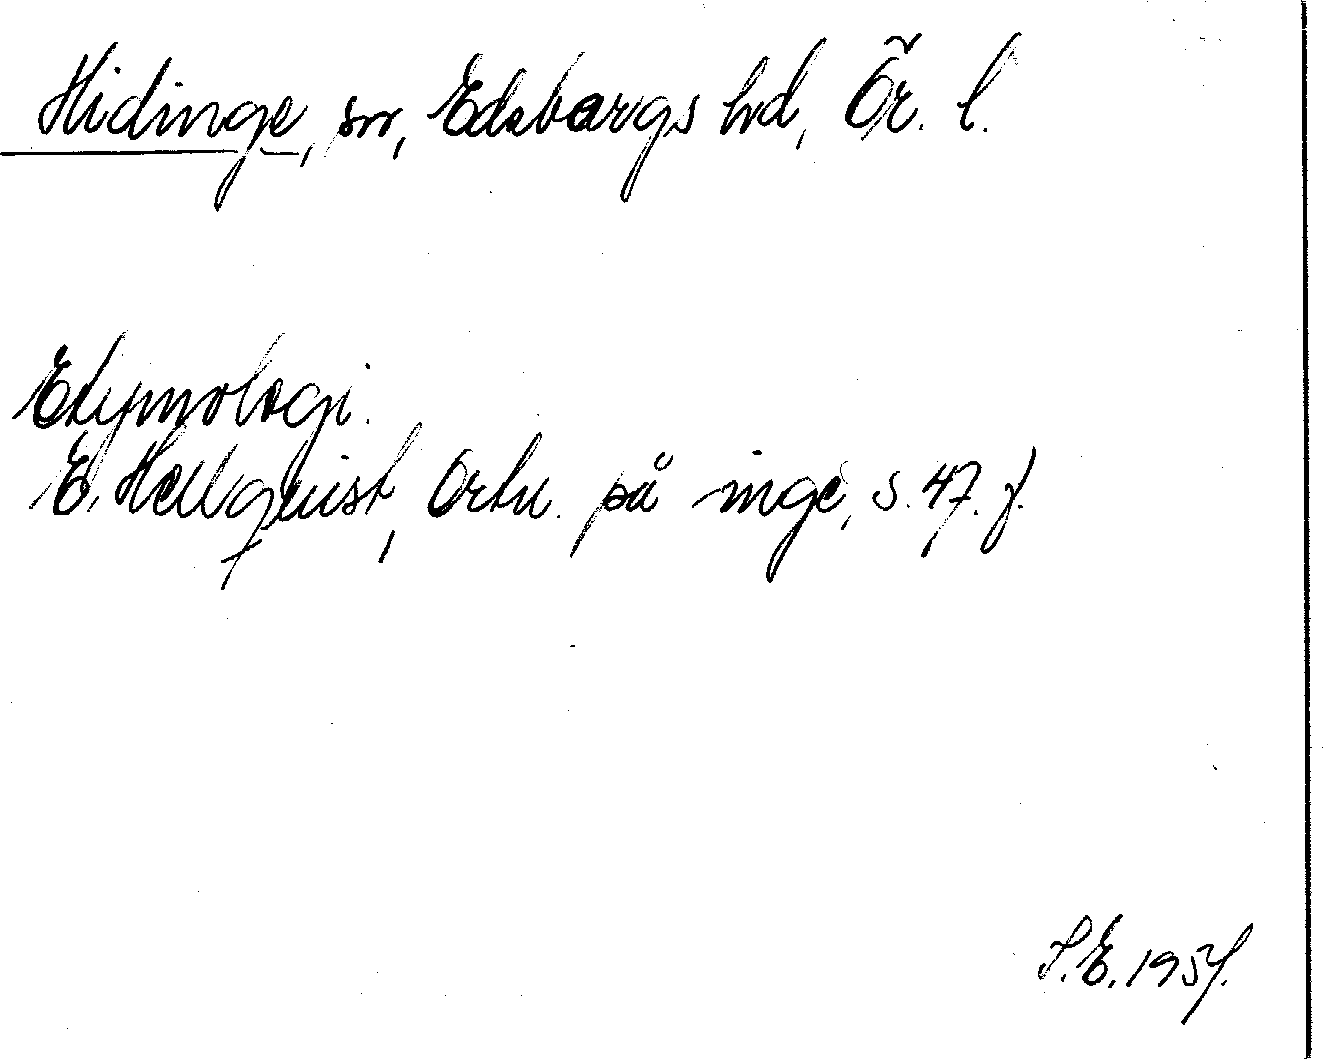 Hidinge, sn, Edsbergs hd, Ör. l.
Etymologi.
E. Hellquist, Ortn. på inge, s. 47. f.
S.E. 1957.